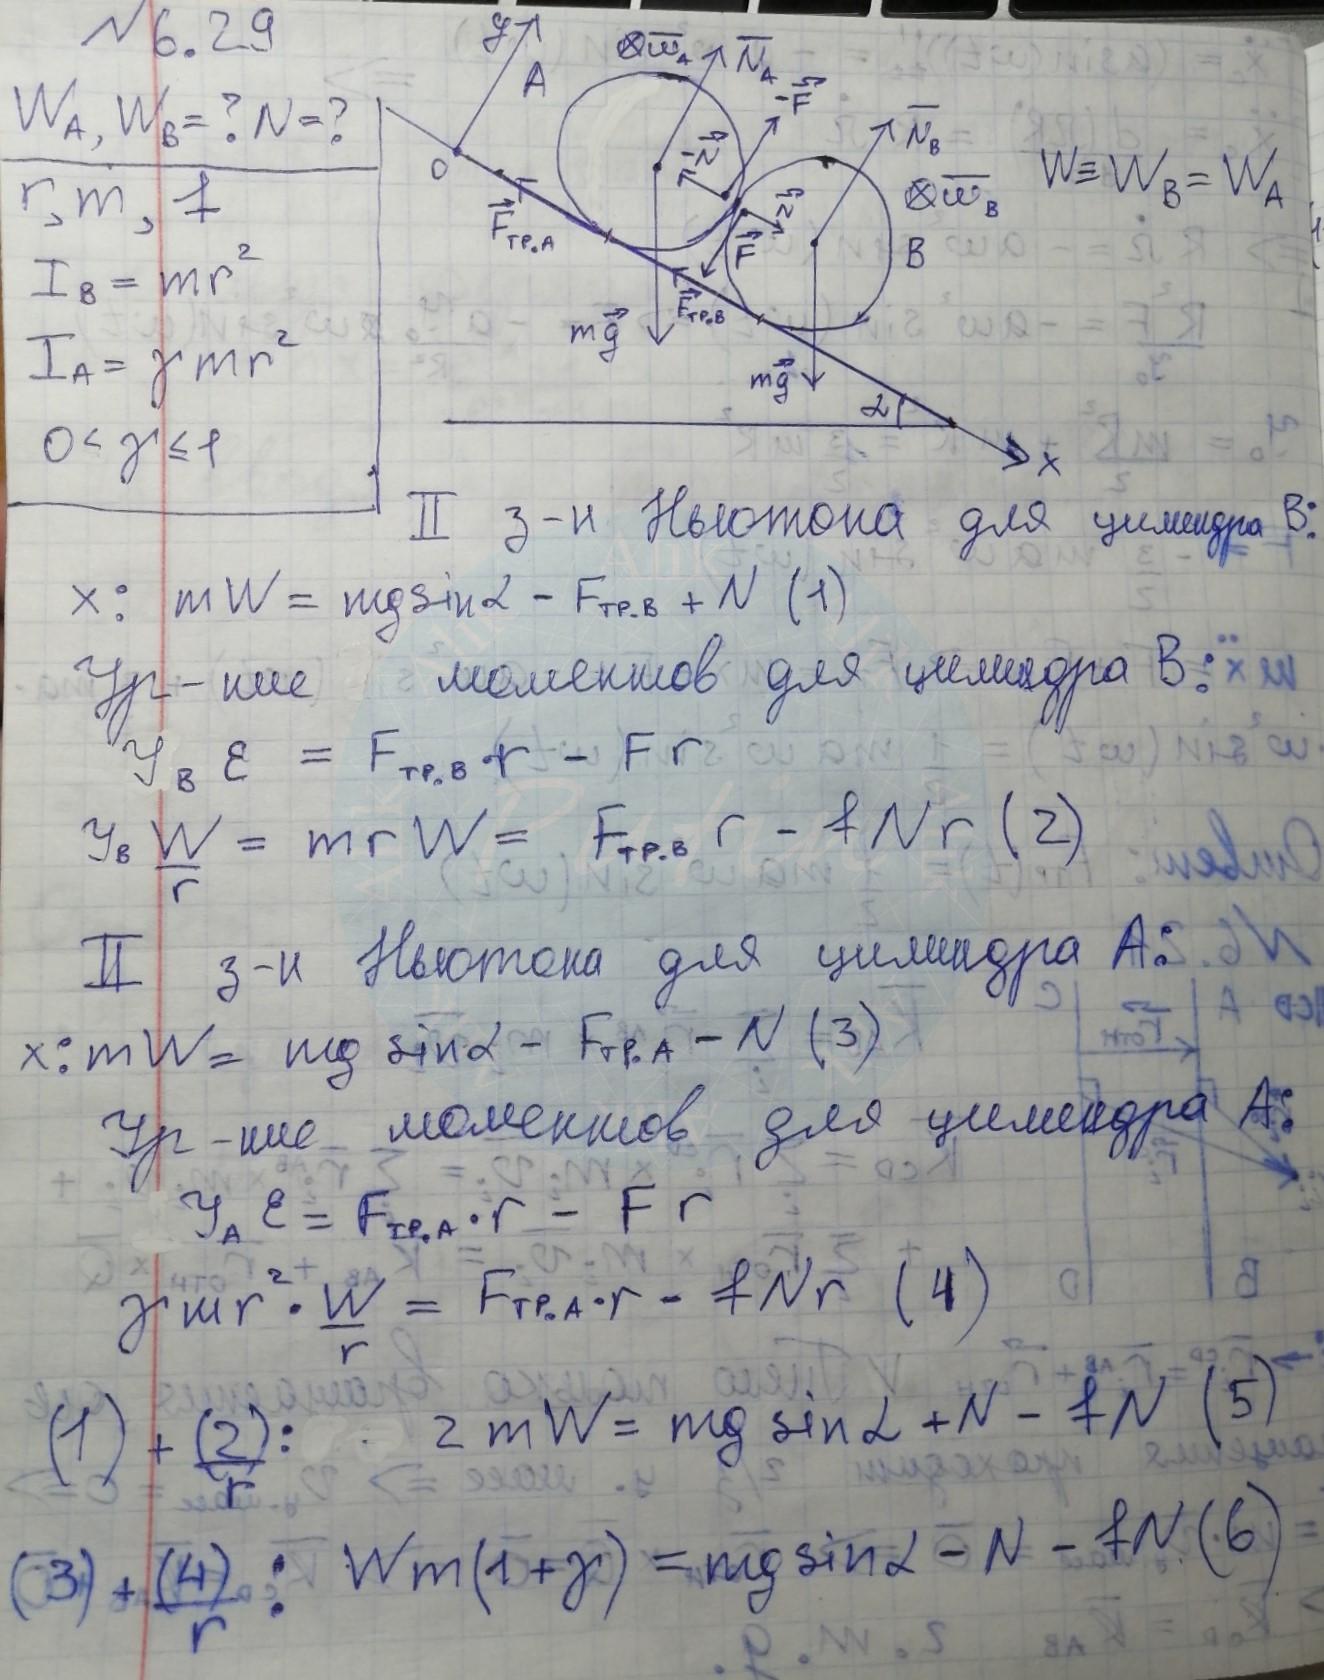 N 6.29
W_A, W_B = ? N = ?
r, m, f
I_B = mr²
I_A = γmr²
0 ≤ γ ≤ 1
y
A
O
⊗ω̅_A
N̅_A
-F⃗
-N⃗
N̅_B
⊗ω̅_B
B
F⃗тр.A
N⃗
F⃗
F⃗тр.B
mg⃗
mg⃗
α
x
W ≡ W_B = W_A
II з-н Ньютона для цилиндра B:
x: mW = mg sinα - Fтр.B + N (1)
Ур-ние моментов для цилиндра B:
J_B ε = Fтр.B · r - Fr
J_B W/r = mrW = Fтр.B r - fNr (2)
II з-н Ньютона для цилиндра A:
x: mW = mg sinα - Fтр.A - N (3)
Ур-ние моментов для цилиндра A:
J_A ε = Fтр.A · r - Fr
γmr² · W/r = Fтр.A · r - fNr (4)
(1) + (2)/r : 2mW = mg sinα + N - fN (5)
(3) + (4)/r : Wm(1+γ) = mg sinα - N - fN (6)